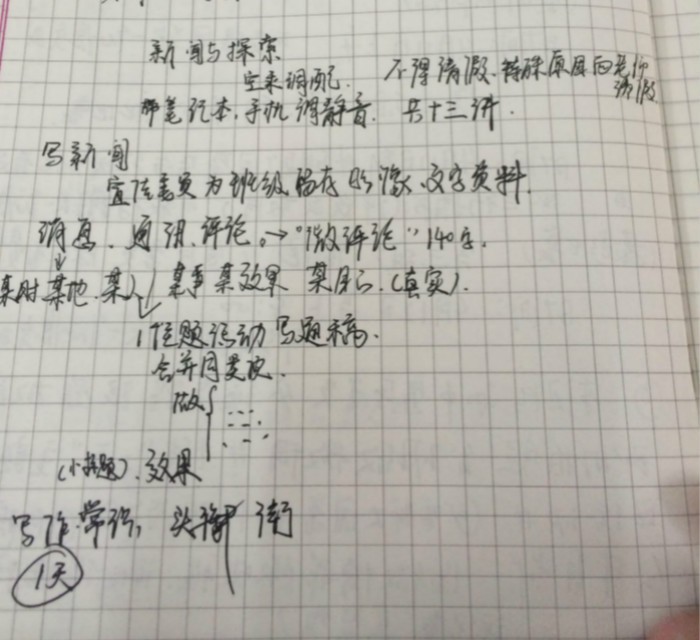 新闻与探索
空来调配. 不得请假、特殊原因向老师请假
带笔记本、手机调静音. 共十三讲.
写新闻
宣传委员为班级留存影像、文字资料.
消息、通讯、评论。→"微评论"140字.
某时某地、某人 某事某效果 某目的.(真实).
1 主题活动写通稿.
合并同类项.
做
(小标题).效果
写作常识, 头衔 衔
1天